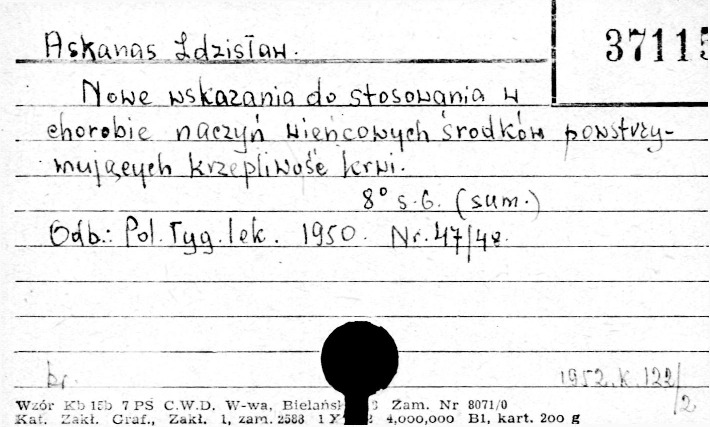 Askanas Zdzisław.
37115
Nowe wskazania do stosowania w
chorobie naczyń wieńcowych środków powstrzy-
mujących krzepliwość krwi.
8° s.6. (sum.)
Odb.: Pol. Tyg. lek. 1950. Nr. 47/48.
br.
1952.K.122/2
Wzór Kb 15b 7 PS C.W.D. W-wa, Bielańs Zam. Nr 8071/0
Kat. Zakł. Graf., Zakł. 1, zam. 2583 1 X 2 4,000,000 B1, kart. 200 g